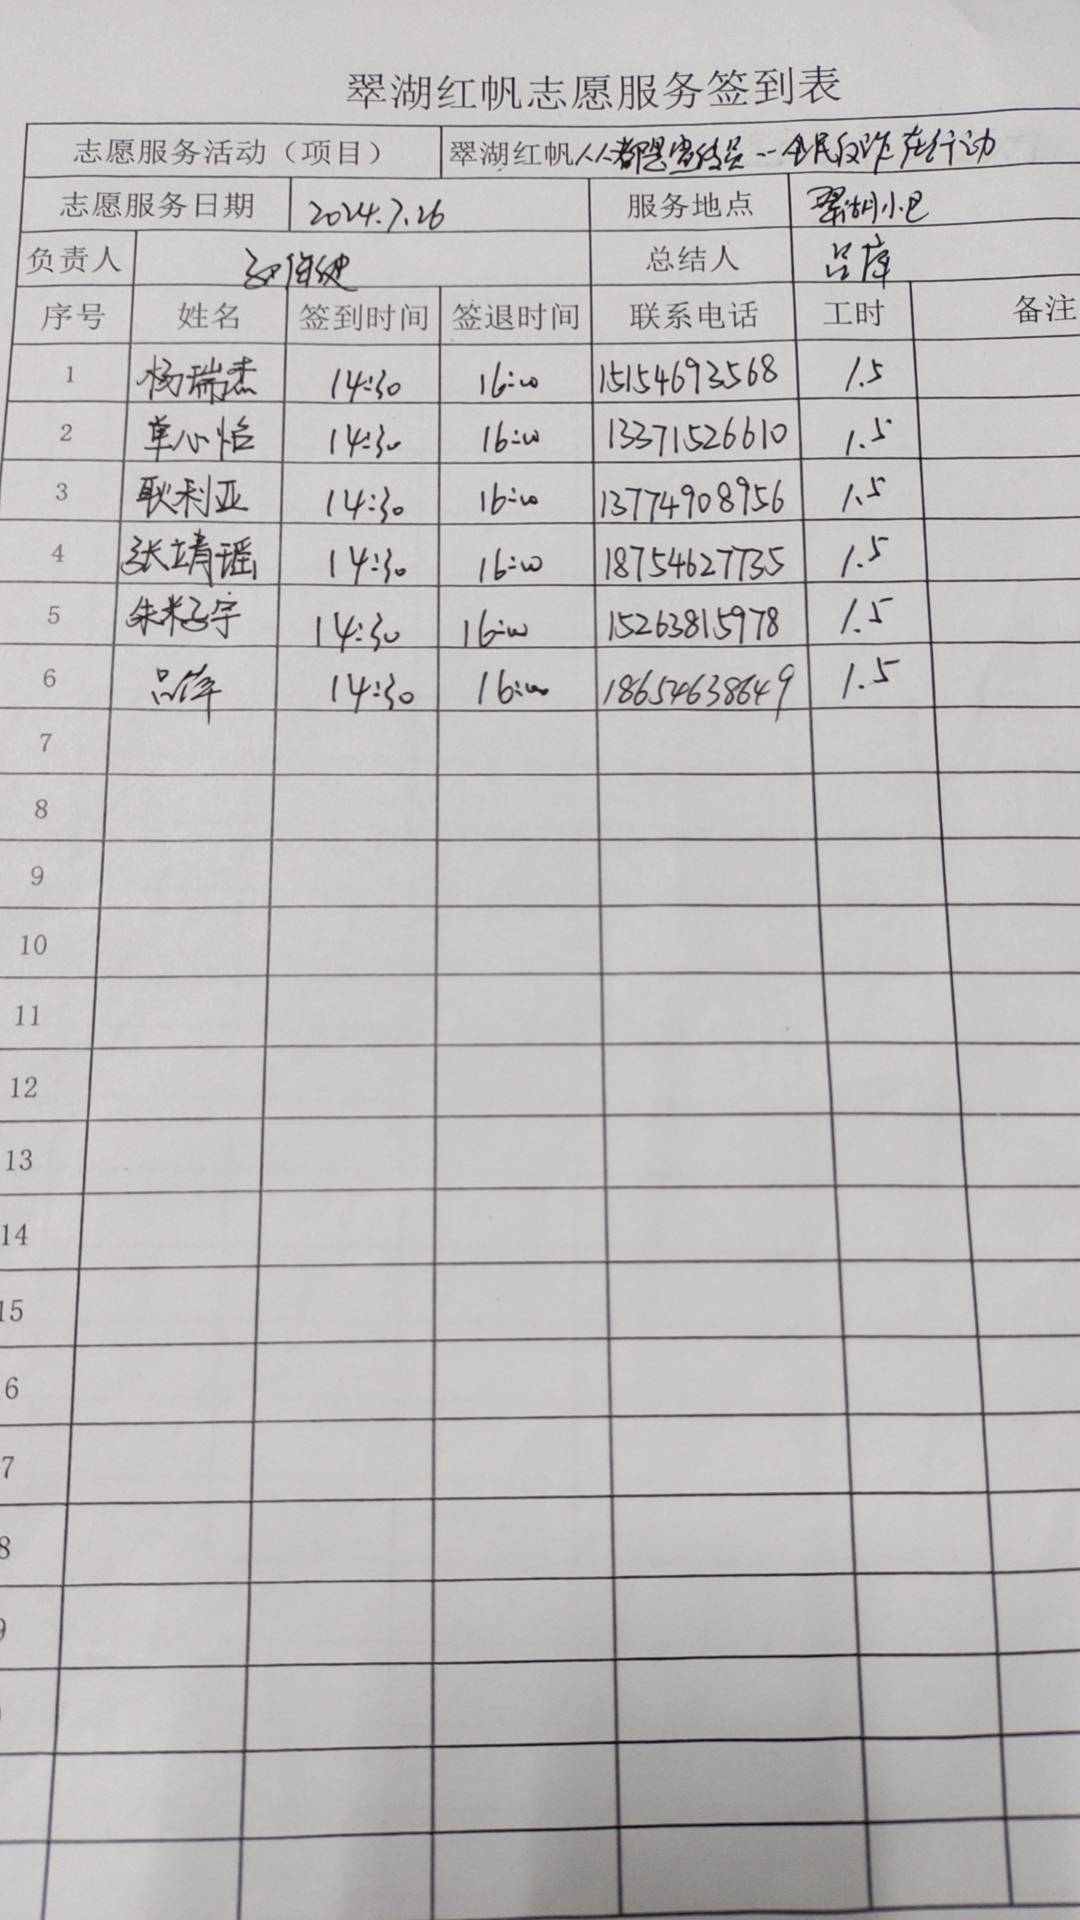 翠湖红帆志愿服务签到表
志愿服务活动（项目） 翠湖红帆人人都是宣传员--全民反诈在行动
志愿服务日期 2024.7.26 服务地点 翠湖小区
负责人 总结人
序号 姓名 签到时间 签退时间 联系电话 工时 备注
1 杨瑞杰 14:30 16:00 15154693568 1.5
2 单心怡 14:30 16:00 13371526610 1.5
3 耿利亚 14:30 16:00 13774908956 1.5
4 张靖瑶 14:30 16:00 18754627735 1.5
5 14:30 16:00 15263815978 1.5
6 14:30 16:00 18654638649 1.5
7
8
9
10
11
12
13
14
15
6
7
8
9